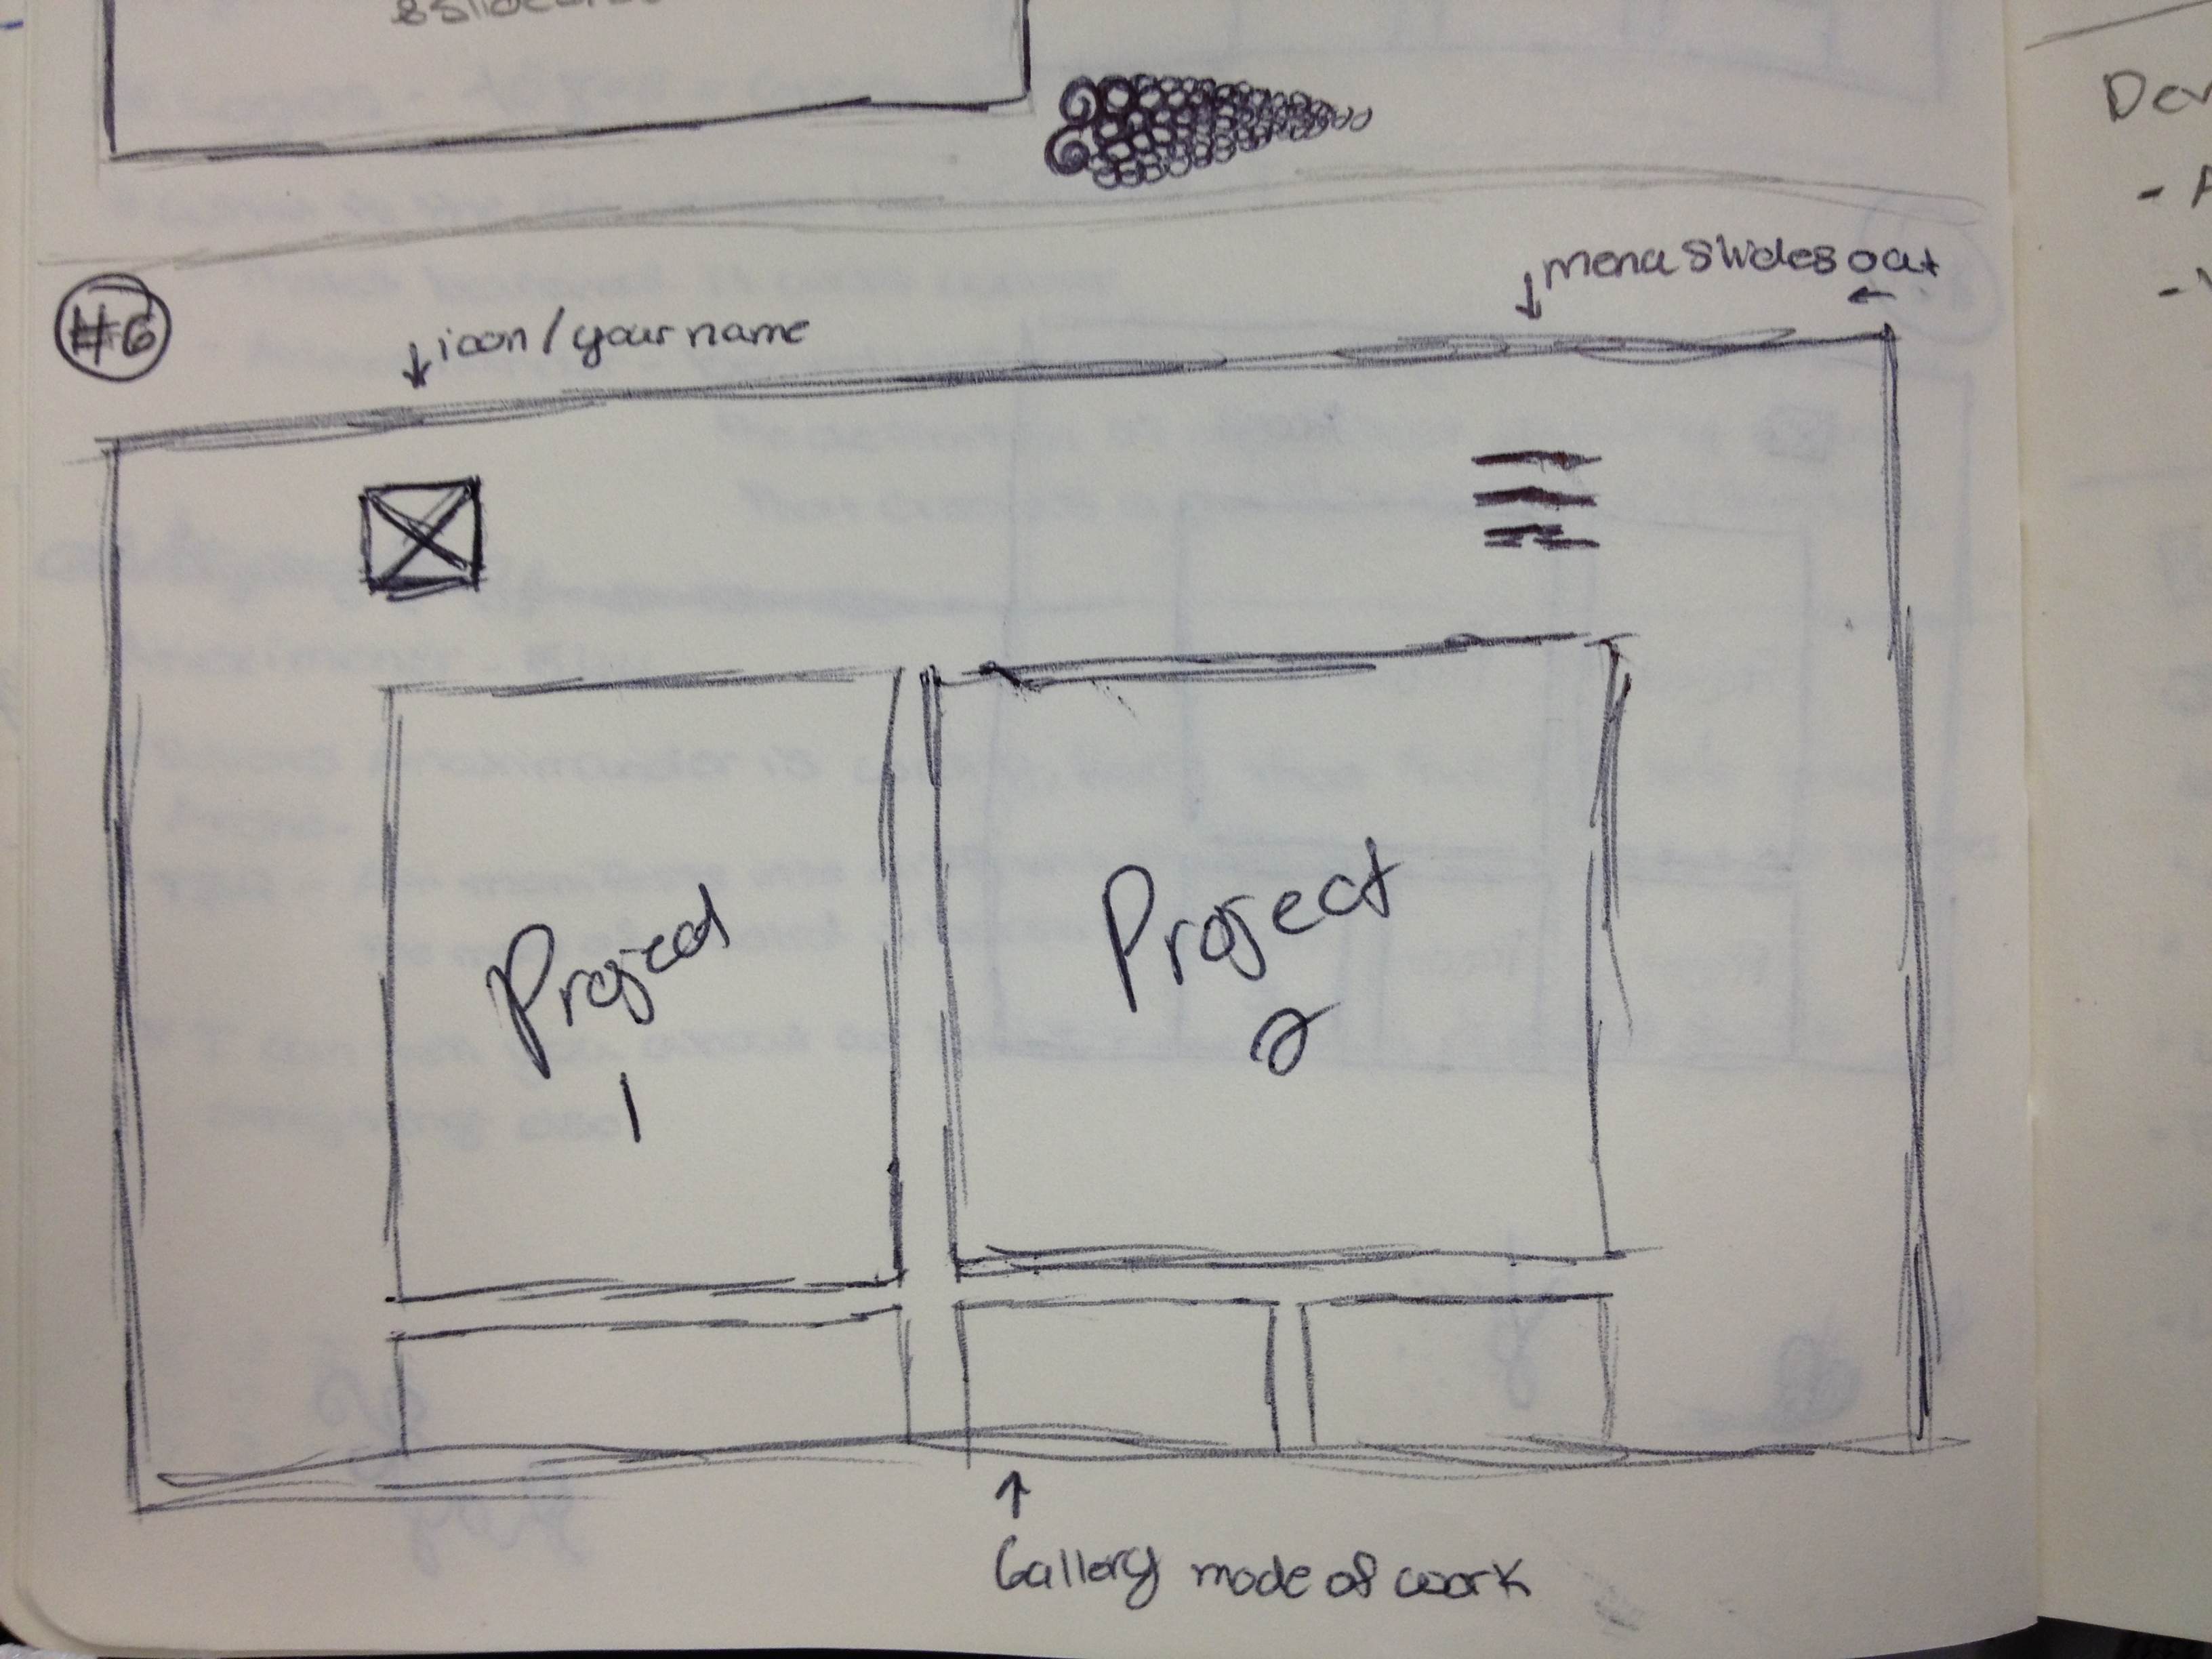 #2
icon/your name
menu slides out
Project
1
Project
2
Gallery mode of work